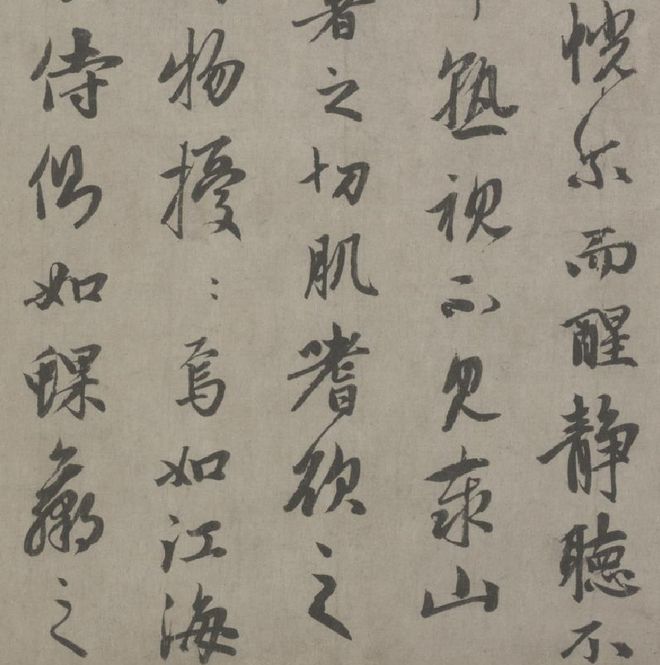 恍尔而醒静聽不
熟視不見泰山
暑之切肌嗜欲之
物擾〻焉如江海
侍側如蜾蠃之